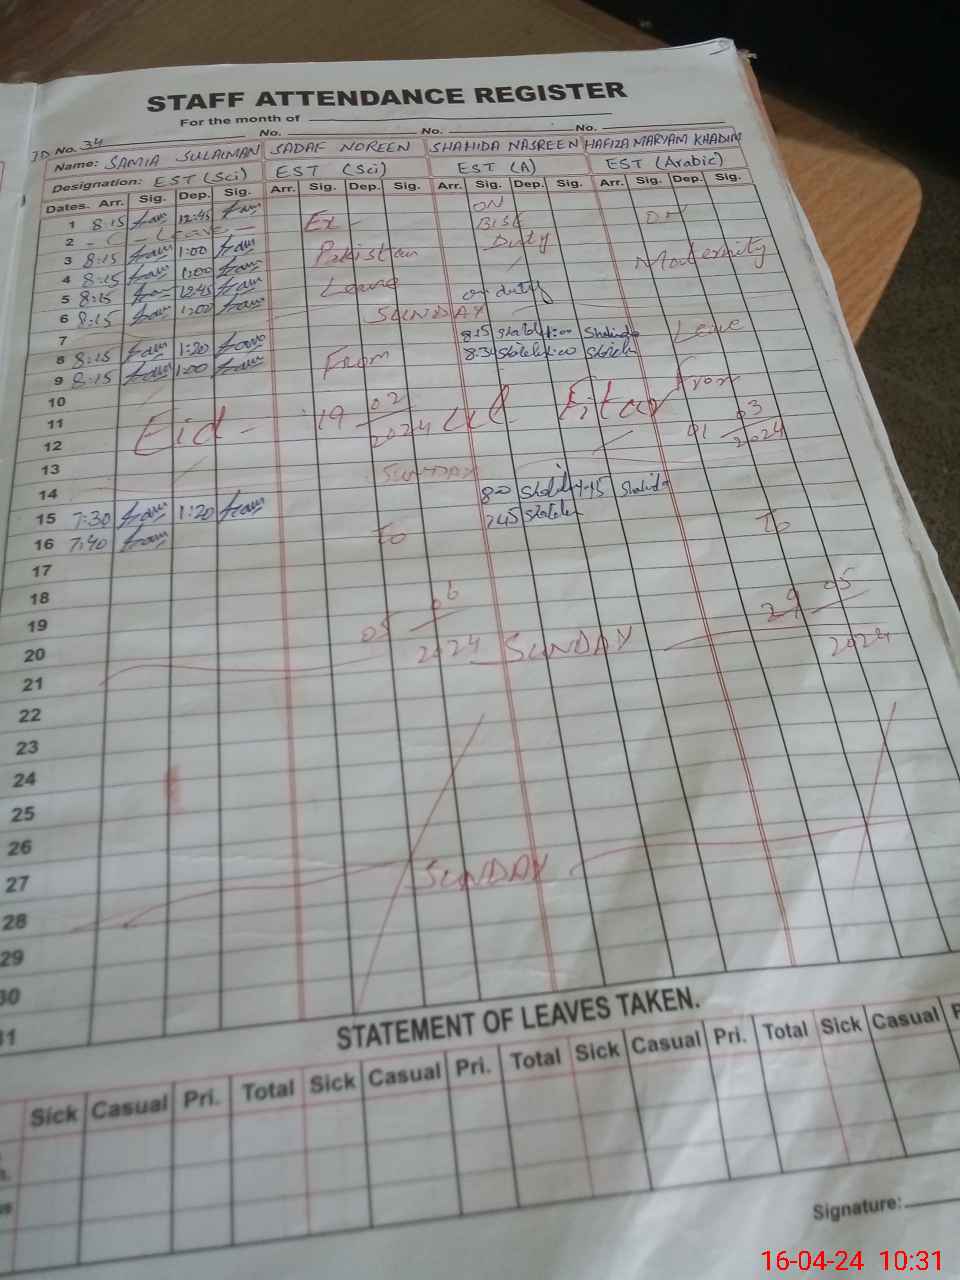 STAFF ATTENDANCE REGISTER
For the month of
ID No. 34 No. No. No.
Name: SAMIA SULAIMAN SADAF NOREEN SHAHIDA NASREEN HAFIZA MARYAM KHADIM
Designation: EST (Sci) EST (Sci) EST (A) EST (Arabic)
Dates. Arr. Sig. Dep. Sig. Arr. Sig. Dep. Sig. Arr. Sig. Dep. Sig. Arr. Sig. Dep. Sig.
1 8:15 12:45 Ex ON ON
2 - C - Leave - BISE
3 8:15 1:00 Pakistan Duty Maternity
4 8:15 1:00
5 8:15 12:45 Leave on duty
6 8:15 1:00
7 SUNDAY
8 8:15 1:20 8:15 Leave
9 8:15 1:00 From 8:34
10 From
11 Eid - 19 02 2024 ul Fitar 01 03 2024
12
13
14 SUNDAY 8:00
15 7:30 1:20 7:45
16 7:40 To To
17
18
19 05 06 2024 29 05 2024
20
21 SUNDAY
22
23
24
25
26
27
28 SUNDAY
29
30
31
STATEMENT OF LEAVES TAKEN.
Sick Casual Pri. Total Sick Casual Pri. Total Sick Casual Pri. Total Sick Casual P
Signature:
16-04-24 10:31